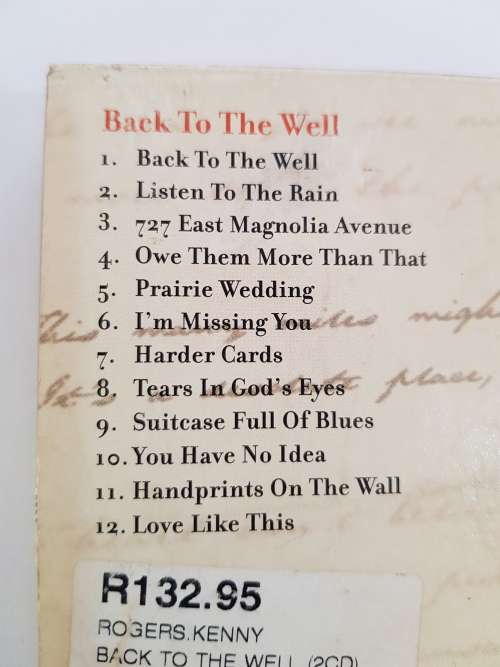 Back To The Well
1. Back To The Well
2. Listen To The Rain
3. 727 East Magnolia Avenue
4. Owe Them More Than That
5. Prairie Wedding
6. I'm Missing You
7. Harder Cards
8. Tears In God's Eyes
9. Suitcase Full Of Blues
10. You Have No Idea
11. Handprints On The Wall
12. Love Like This
R132.95
ROGERS.KENNY
BACK TO THE WELL (2CD)